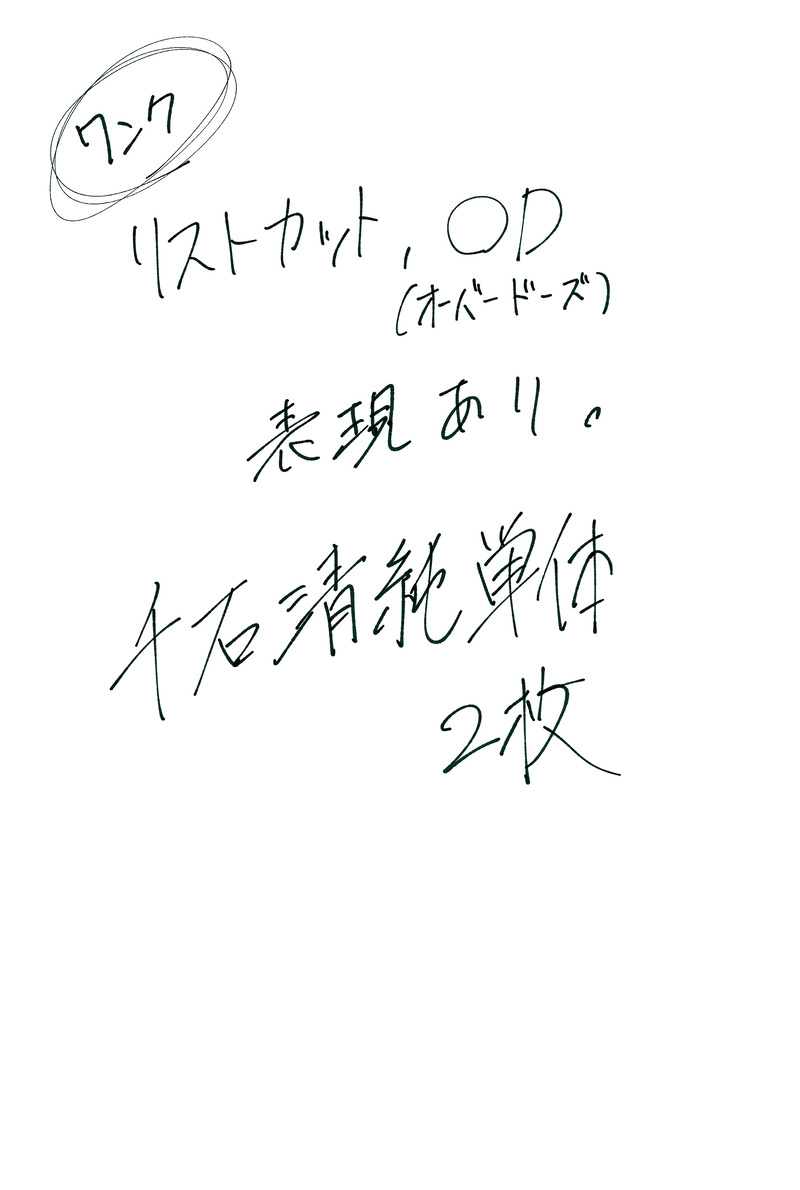 ワンク
リストカット, OD
(オーバードーズ)
表現あり。
千石清純単体
2枚